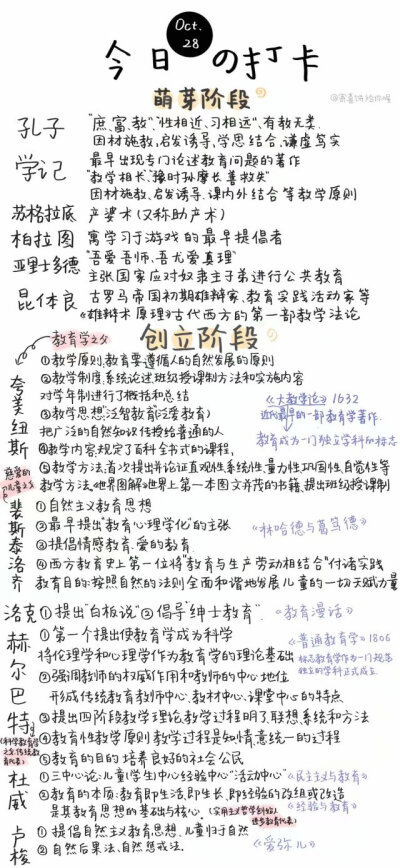 Oct.
28
今日の打卡
萌芽阶段
孔子 "庶、富、教""性相近、习相远"、有教无类.
因材施教,启发诱导,学思结合、谦虚笃实
学记 最早出现专门论述教育问题的著作
"教学相长""豫时孙摩长善救失"
因材施教、启发诱导.课内外结合等教学原则
苏格拉底 产婆术(又称助产术)
柏拉图 寓学习于游戏的最早提倡者
亚里士多德 "吾爱吾师、吾尤爱真理"
主张国家应对奴隶主子弟进行公共教育
昆体良 古罗马帝国初期雄辩家、教育实践活动家等
《雄辩术原理》古代西方的第一部教学法论
教育学之父
创立阶段
夸美纽斯
①教学原则.教育要遵循人的自然发展的原则
②教学制度.系统论述班级授课制方法和实施内容
对学年制进行了概括和总结
③教学思想"泛智教育(泛爱教育)
把广泛的自然知识传授给普通的人
④教学内容.规定了百科全书式的课程,
⑤教学方法.首次提出并论证直观性系统性.量力性.巩固性.自觉性等
教学方法.《世界图解》世界上第一本图文并茂的书籍.提出班级授课制
《大教学论》1632
近代最早的一部教育学著作.
教育成为一门独立学科的标志
裴斯泰洛齐
①自然主义教育思想
②最早提出"教育心理学化"的主张
③提倡情感教育.爱的教育
④西方教育史上第一位将"教育与生产劳动相结合"付诸实践
教育目的:按照自然的法则全面和谐地发展儿童的一切天赋力量
《林哈德与葛笃德》
洛克 ①提出"白板说"②倡导"绅士教育". 《教育漫话》
赫尔巴特
①第一个提出使教育学成为科学
将伦理学和心理学作为教育学的理论基础
②强调教师的权威作用和教师的中心地位
形成传统教育教师中心、教材中心.课堂中心的特点
③提出四阶段教学理论.教学过程明了.联想.系统和方法
④教育性教学原则.教学过程是知情.意统一的过程
⑤教育的目的.培养良好的社会公民
《普通教育学》1806
标志教育学作为一门规范
独立的学科正式成立
杜威
①三中心论:儿童(学生)中心"经验中心""活动中心" 《民主主义与教育》
②教育的本质:教育即生活.即生长.即经验的改组或改造
是其教育思想的基础与核心. 《经验与教育》
卢梭
①提倡自然主义教育思想.儿童归于自然
②自然后果法.自然惩戒法. 《爱弥儿》